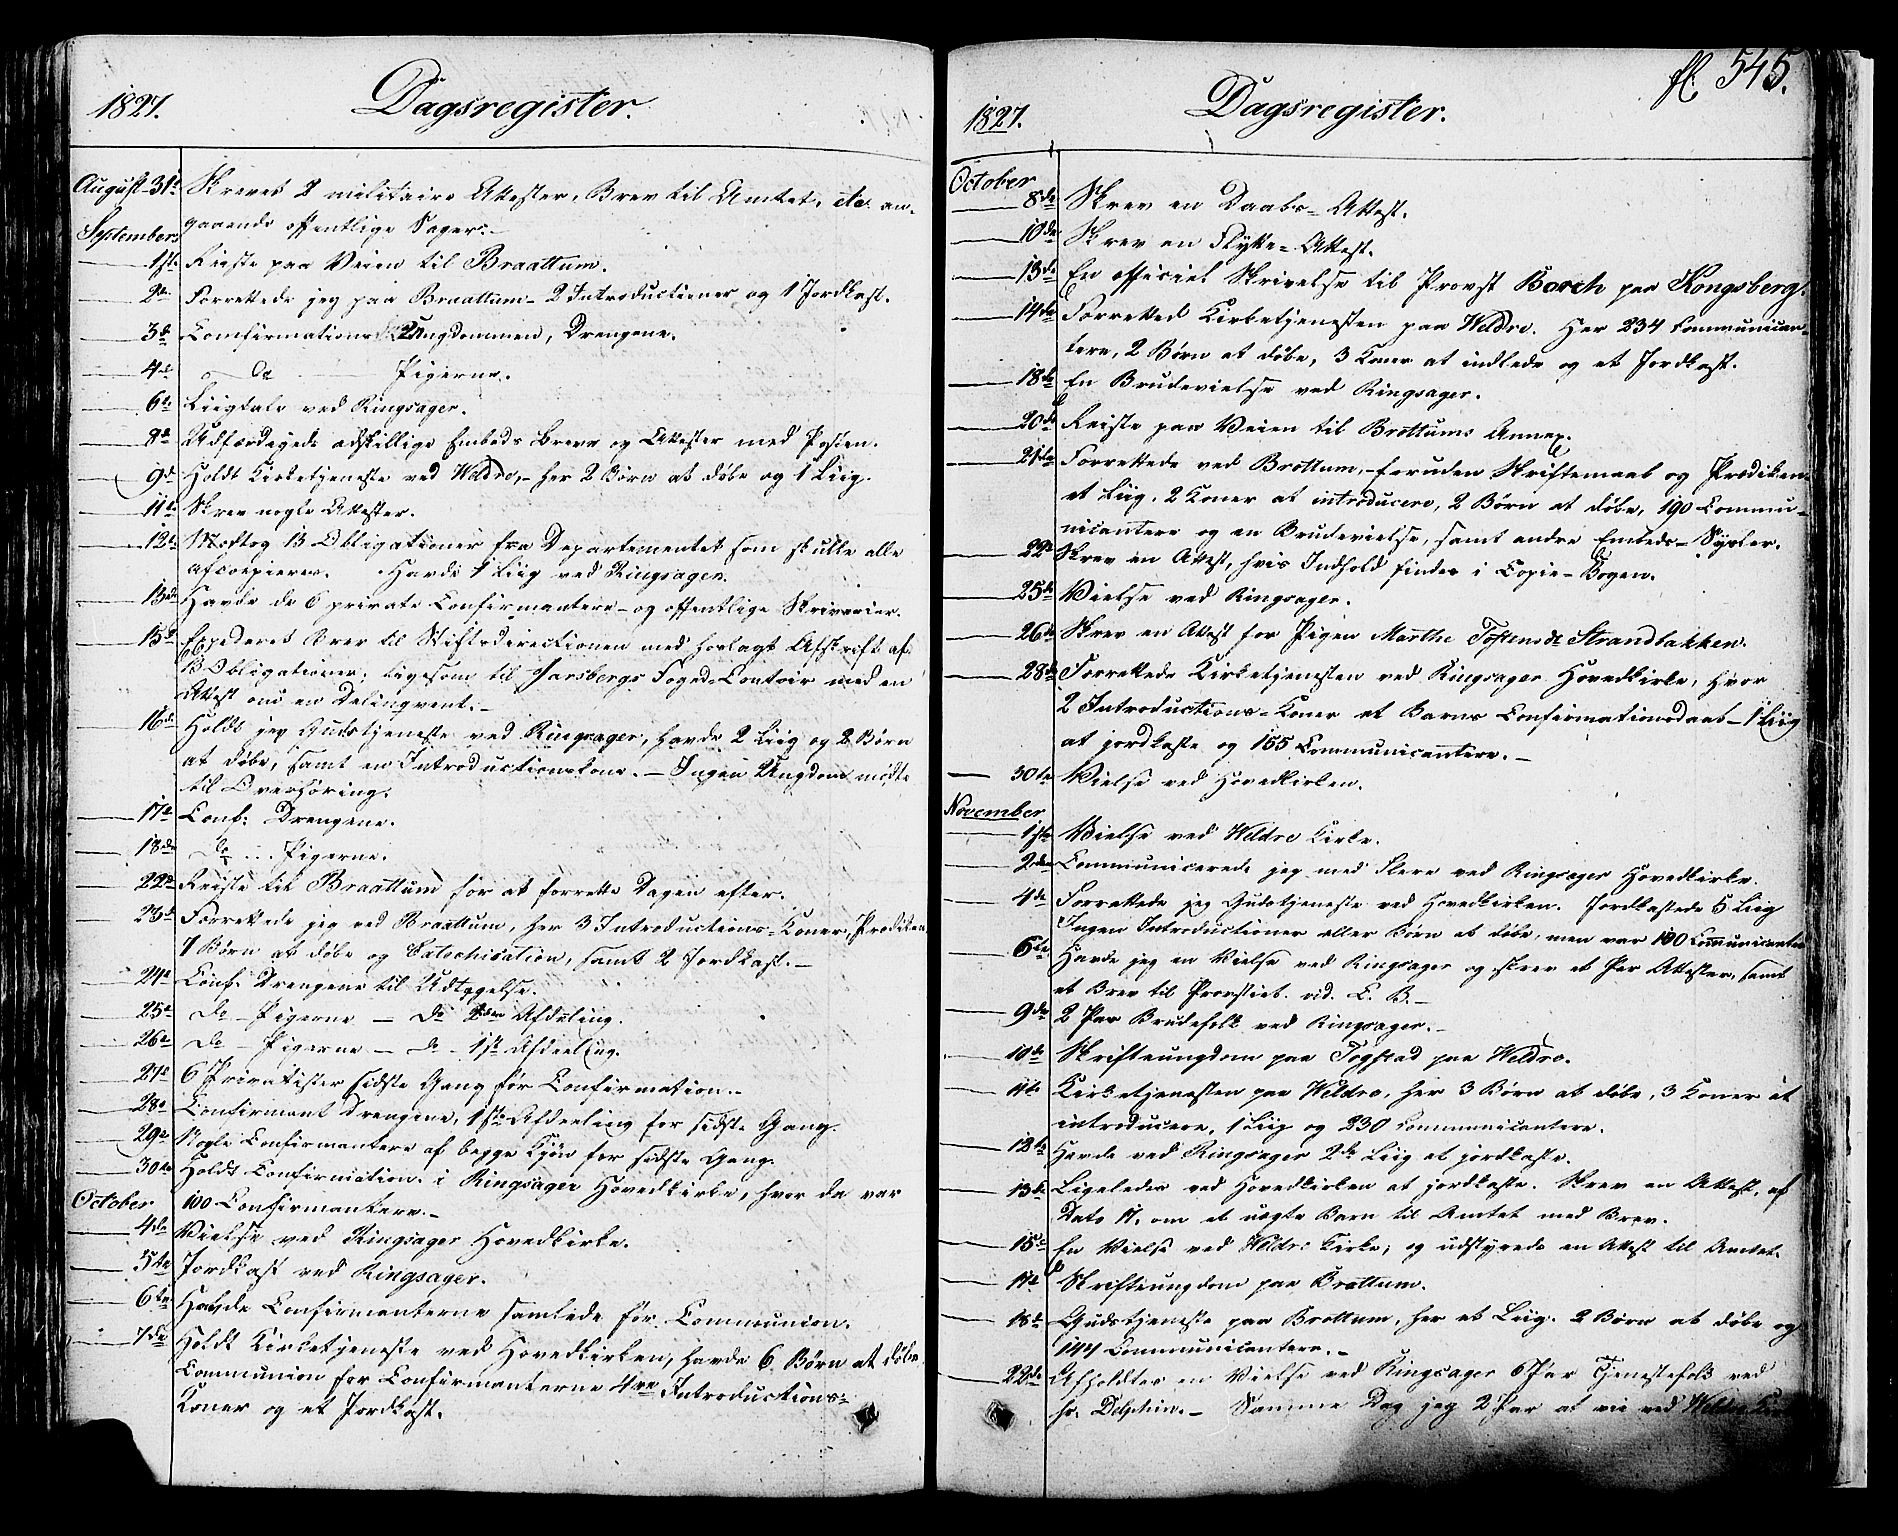 1827. Dagsregister.
August 31te Skrevet 2 militaire Attester, Brev til Amtet, etc. an-
gaaende offentlige Sager.-
September
1ste Reiste paa Veien til Braattum.
2de Forrettede jeg paa Braattum - 2 Introductioner og 1 Jordkast.
3de Confirmations Ungdommen, Drengene.
4de - Do - Pigerne.
6te Liigtale ved Ringsager.
8de Udfærdigede adskillige Embeds Breve og Attester med Posten.
9de Holdt Kirketjeneste ved Weldre, - her 2 Børn at døbe og 1 Liig.
11te Skrev nogle Attester.
12te Modtog 13 Obligationer fra Departementet som skulle alle
afcopieres. Havde 1 Liig ved Ringsager.
13de Havde de 6 private Confirmantere - og offentlige Skriverier.
15de Expederet Brev til Stiftsdirectionen med forlagt Afskrift af
13 Obligationer, ligesom til Jarlsbergs Fogds Contoir med en
Attest om en Delinqvent.-
16de Holdt jeg Gudstjeneste ved Ringsager, havde 2 Liig og 2 Børn
at døbe, samt en Introductionskone. - Ingen Ungdom mødte
til Overhöring.
17de Conf: Drengene.
18de Do ... Pigerne.
22de Reiste til Braattum for at forrette Dagen efter.
23de Forrettede jeg ved Braattum, her 3 Introductions-Koner, Prediken
1 Børn at døbe og Catechisation, samt 2 Jordkast.-
24de Conf: Drengene til Udtagelse.
25de Do - Pigerne - Do 2den Afdeling.
26de Do - Pigerne - Do - 1ste Afdeeling.
27de 6 Privatister sidste Gang før Confirmation.-
28de Confirmant Drengene, 1ste Afdeeling for sidste Gang.
29de Nogle Confirmantere af begge Kjøn for sidste Gang.
30te Holdt Confirmation i Ringsager Hovedkirke, hvor da var
October 100 Confirmantere.-
4de Vielse ved Ringsager Hovedkirke.
5te Jordkast ved Ringsager.
6te Havde Confirmanterne samlede før Communion.
7de Holdt Kirketjeneste ved Hovedkirken, havde 6 Børn at døbe,
Communion for Confirmanterne 4re Introductions-
Koner og et Jordkast.
fl. 545.
1827. Dagsregister.
October
8de Skrev en Daabs-Attest.
10de Skrev en Flytte-Attest.
13de En officiel Skrivelse til Provst Borch paa Kongsberg.
14de Forretted Kirketjenesten paa Weldre. Her 234 Communican-
tere, 2 Børn at døbe, 3 Koner at indlede og et Jordkast.
18de En Brudevielse ved Ringsager.
20de Reiste paa Veien til Brøttums Annex.
21de Forrettede ved Brøttum, - foruden Skriftemaal og Prediken
et Liig, 2 Koner at introducere, 2 Børn at døbe, 190 Commu-
nicantere og en Brudevielse, samt andre Embeds-Sysler.
22de Skrev en Attest, hvis Indhold findes i Copie-Bogen.
25de Vielse ved Ringsager.
26de Skrev en Attest for Pigen Marthe Tostensdr Strandbakken.
28de Forrettede Kirketjenesten ved Ringsager Hovedkirke, hvor
2 Introductions-Koner et Barns Confirmationsdaab - 1 Liig
at jordkaste og 155 Communicantere.-
30te Vielse ved Hovedkirken.
November
1ste Vielse ved Weldre Kirke.
2den Communicerede jeg med Flere ved Ringsager Hovedkirke.
4de Forrettede jeg Gudstjeneste ved Hovedkirken. Jordkastede 5 Liig
Ingen Introductioner eller Børn at døbe, men var 100 Communicantere
6te Havde jeg en Vielse ved Ringsager og skrev et Par Attester, samt
et Brev til Provstiet. vid. C. B.-
9de 2 Par Brudefolk ved Ringsager.-
10de Skrifteungdom paa Togstad paa Weldre.
11te Kirketjenesten paa Weldre, her 3 Børn at døbe, 3 Koner at
introducere, 1 Liig og 230 Communicantere.
12te Havde ved Ringsager 2de Liig at jordkaste.
13de Ligeledes ved Hovedkirken at jordkaste. Skrev en Attest, af
Dato 11, om et uægte Barn til Amtet med Brev.
15de En Vielse ved Weldre Kirke, og udstyrede en Attest til Amtet.
17de Skrifteungdom paa Brøttum.
18de Gudstjeneste paa Brøttum, her et Liig, 2 Børn at døbe og
144 Communicantere.-
22de Afholdtes en Vielse ved Ringsager 6 Par Tjenestefolk ved
Hr. Delphin.- Samme Dag jeg 2 Par at vie ved Weldre Kirke